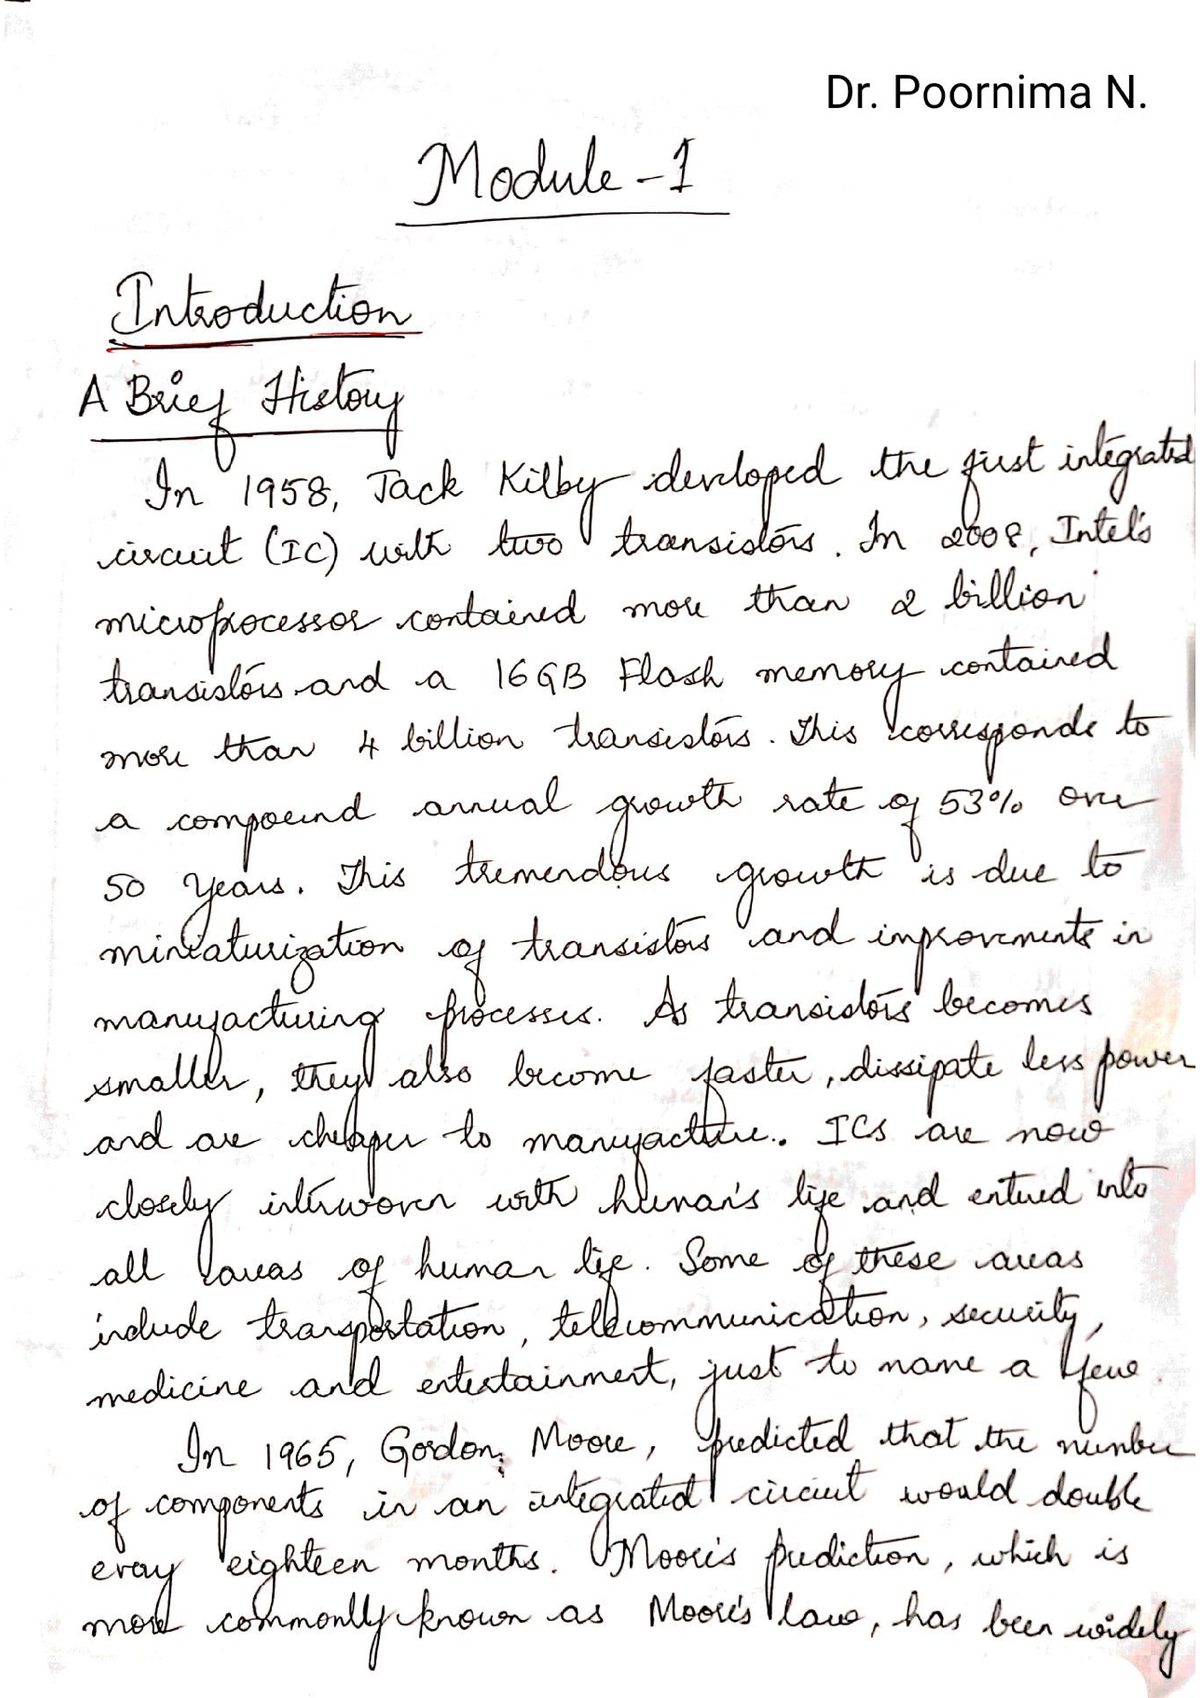 Dr. Poornima N.
Module - 1
Introduction
A Brief History
In 1958, Jack Kilby developed the first integrated
circuit (IC) with two transistors. In 2008, Intel's
microprocessor contained more than 2 billion
transistors and a 16GB Flash memory contained
more than 4 billion transistors. This corresponds to
a compound annual growth rate of 53% over
50 years. This tremendous growth is due to
miniaturization of transistors and improvements in
manufacturing processes. As transistors becomes
smaller, they also become faster, dissipate less power
and are cheaper to manufacture. ICs are now
closely interwoven with human's life and entered into
all areas of human life. Some of these areas
include transportation, telecommunication, security,
medicine and entertainment, just to name a few.
In 1965, Gordon Moore, predicted that the number
of components in an integrated circuit would double
every eighteen months. Moore's prediction, which is
more commonly known as Moore's law, has been widely